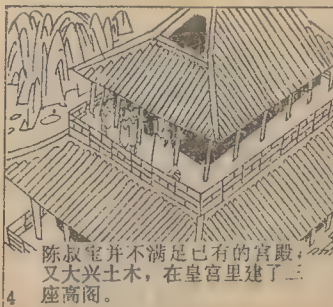 陈叔宝并不满足已有的宫殿，
又大兴土木，在皇宫里建了三
座高阁。
4